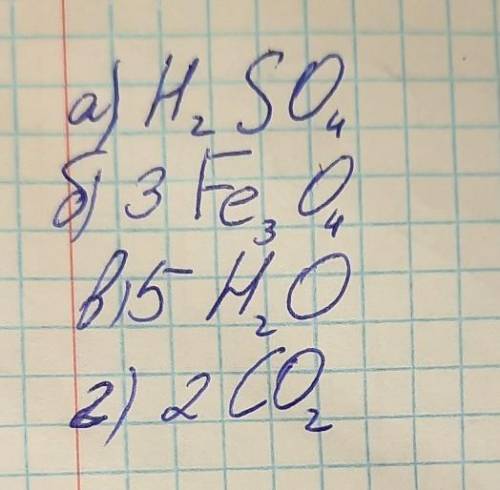 а) H₂SO₄
б) 3Fe₃O₄
в) 5H₂O
г) 2CO₂